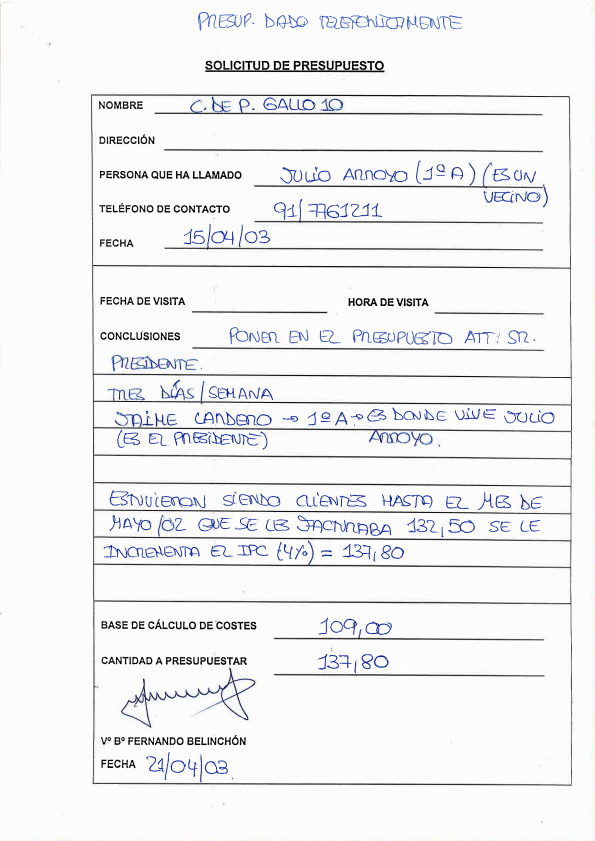 PRESUP. DADO TELEFONICAMENTE
SOLICITUD DE PRESUPUESTO
NOMBRE C. DE P. GALLO 10
DIRECCIÓN
PERSONA QUE HA LLAMADO JULIO ARROYO (1º A) (ES UN
VECINO)
TELÉFONO DE CONTACTO 91/7761211
FECHA 15/04/03
FECHA DE VISITA HORA DE VISITA
CONCLUSIONES PONER EN EL PRESUPUESTO ATT: SR.
PRESIDENTE.
TRES DÍAS/SEMANA
JAIME CANDERO → 1º A → ES DONDE VIVE JULIO
(ES EL PRESIDENTE) ARROYO.
ESTUVIERON SIENDO CLIENTES HASTA EL MES DE
MAYO/02 QUE SE LES FACTURABA 132,50 SE LE
INCREMENTA EL IPC (4%) = 137,80
BASE DE CÁLCULO DE COSTES 109,00
CANTIDAD A PRESUPUESTAR 137,80
Vº Bº FERNANDO BELINCHÓN
FECHA 21/04/03